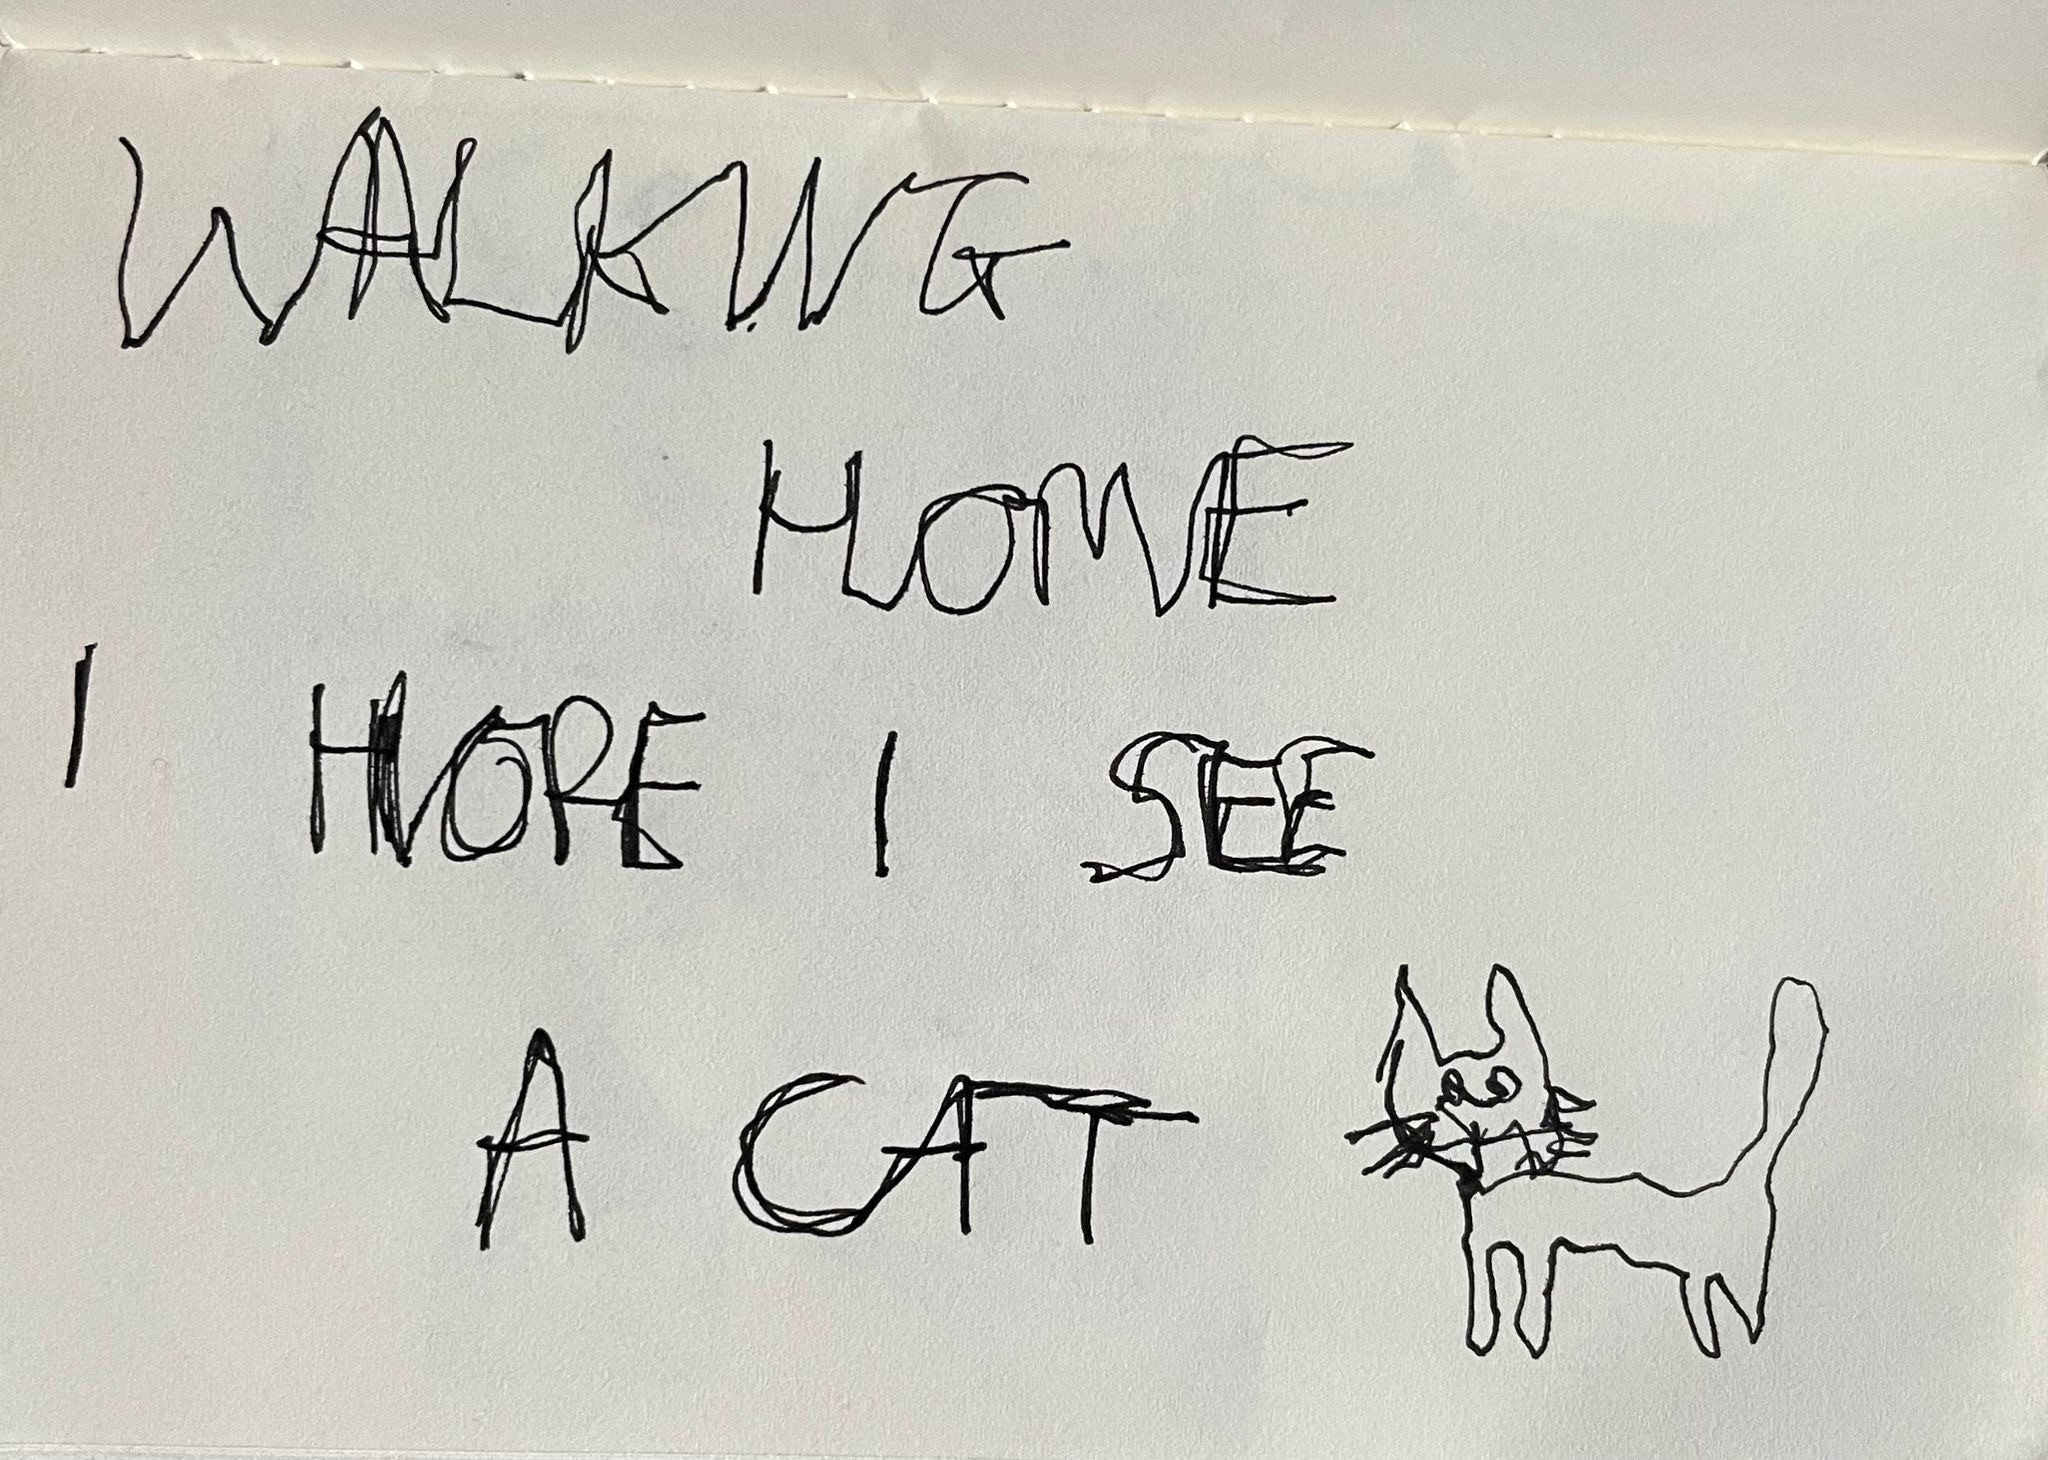 WALKING
HOME
I HOPE I SEE
A CAT